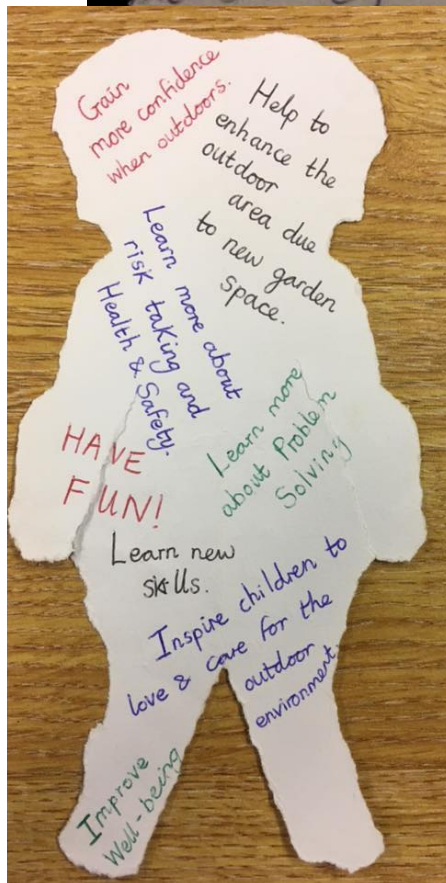 Gain
more confidence
when outdoors.
Help to
enhance the
outdoor
area due
to new garden
space.
Learn more about
risk taking and
Health & Safety.
HAVE
FUN!
Learn more
about Problem
Solving
Learn new
skills.
Inspire children to
love & care for the
outdoor
environment.
Improve
Well-being